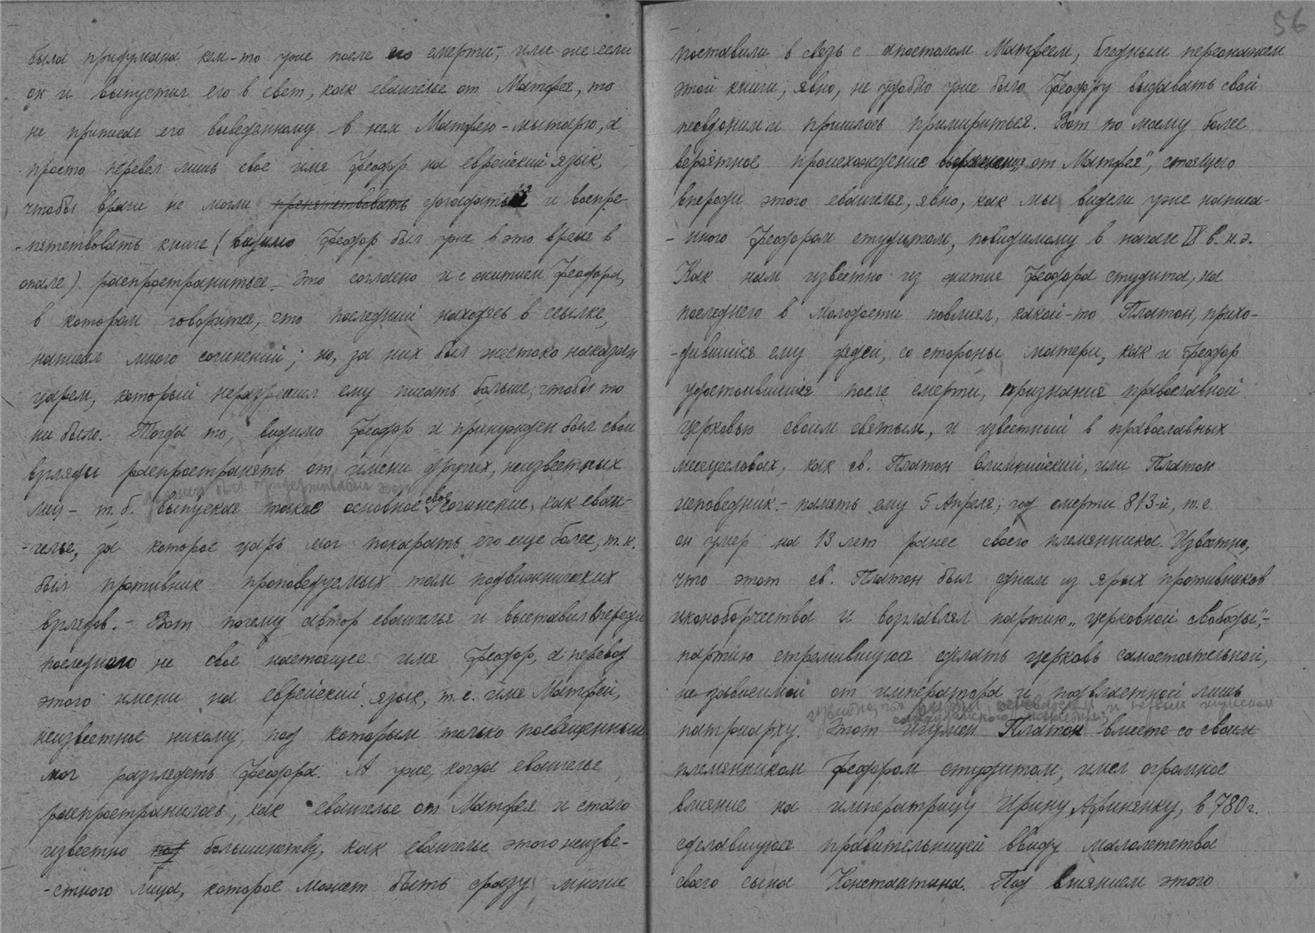 была придумана кем-то уже после его смерти; или же если
он и выпустил его в свет, как евангелье от Матфея, то
не приписал его выведенному в нем Матфею-мытарю, а
просто перевел лишь свое имя Феодор на еврейский язык,
чтобы враги не могли препятствовать догадаться и воспре-
-пятствовать книге (видимо Феодор был уже в это время в
опале) распространиться. Это согласно и с житием Феодора,
в котором говорится, что последний находясь в ссылке,
написал много сочинений; но, за них был жестоко наказан
царем, который неразрешил ему писать больше, чтобы то
ни было. Тогда то, видимо Феодор и принужден был свои
взгляды распространять от имени других, неизвестных
лиц - т.б. выпуская такое основное свое сочинение, как еван-
-гелье, за которое царь мог покарать его еще более, т.к.
был противник проповедуемых там подвижнических
взглядов. - Вот почему автор евангелья и выставил впереди
последнего не свое настоящее имя Феодор, а перевод
этого имени на еврейский язык, т.е. имя Матфей,
неизвестное никому, под которым только посвященный
мог разглядеть Феодора. А уже, когда евангелье
распространилось, как евангелье от Матфея и стало
известно под большинству, как евангелье этого неизве-
-стного лица, которое может быть сразу многие
56
поставили в связь с апостолом Матфеем, бледным персонажем
этой книги, явно, не удобно уже было Феодору выдавать свой
псевдоним и пришлось примириться. Вот по моему более
вероятное происхождение выражения „от Матфея", стоящего
впереди этого евангелья, явно, как мы видели уже написа-
-нного Феодором студитом, повидимому в начале IX в. н.э.
Как нам известно из жития Феодора студита, на
последнего в молодости повлиял, какой-то Платон, прихо-
-дившийся ему дядей, со стороны матери, как и Феодор
удостоившийся после смерти, признания православной
церковью своим святым, и известный в православных
месяцесловах, как св. Платон Олимпийский, или Платон
исповедник. - память ему 5 Апреля; год смерти 813-й, т.е.
он умер на 13 лет ранее своего племянника. Известно,
что этот св. Платон был одним из ярых противников
иконоборчества и возглавлял партию „церковной свободы", -
партию стремившуюся сделать церковь самостоятельной,
не зависимой от императора и подвластной лишь
патриарху. Этот игумен Платон вместе со своим
племянником Феодором студитом, имел огромное
влияние на императрицу Ирину Афинянку, в 780 г.
сделавшуюся правительницей ввиду малолетства
своего сына Константина. Под влиянием этого